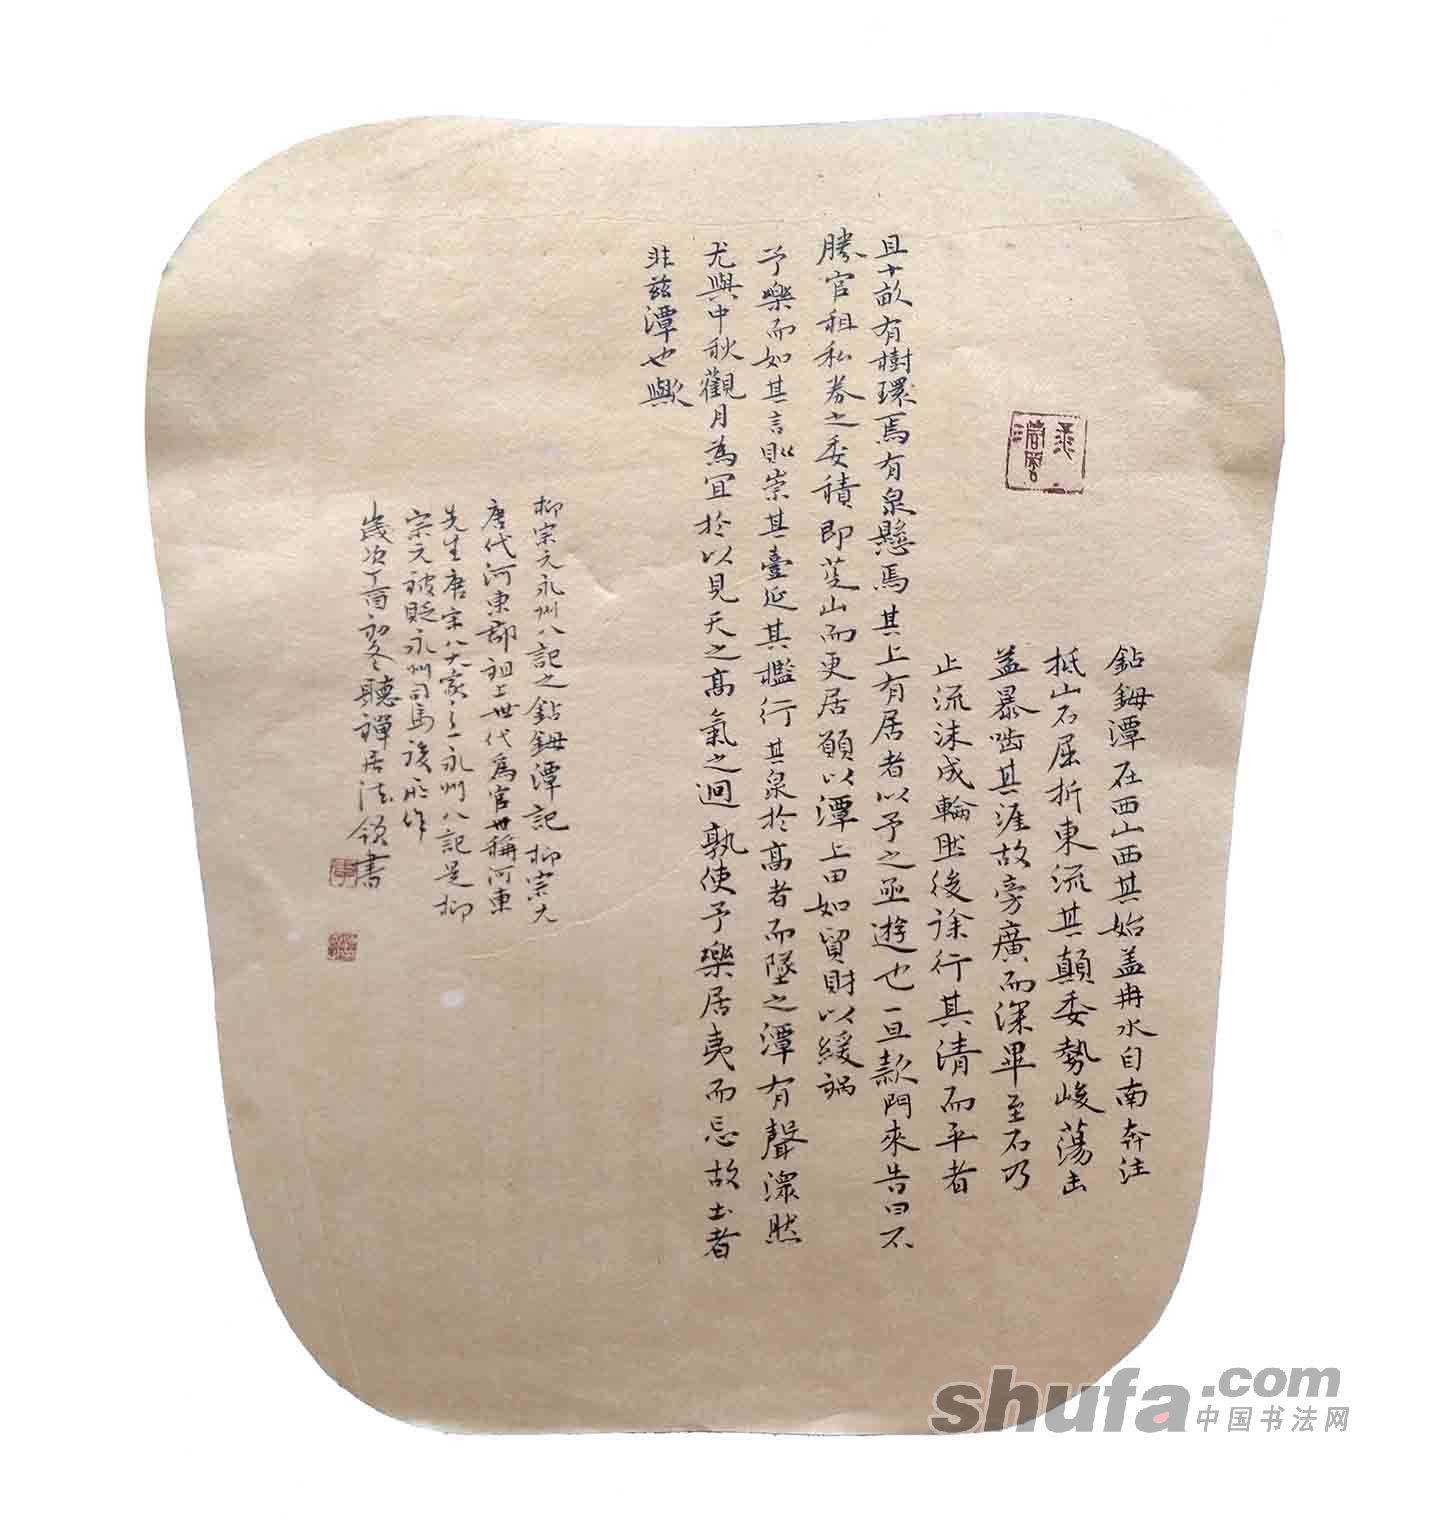 鈷鉧潭在西山西其始盖冉水自南奔注
抵山石屈折東流其顛委勢峻蕩击
益暴嚙其涯故旁廣而深畢至石乃
止流沫成輪然後徐行其清而平者
且十畝有樹環焉有泉懸焉其上有居者以予之亟遊也一旦款門來告曰不
勝官租私券之委積即芟山而更居願以潭上田如貿財以緩禍
予樂而如其言則崇其臺延其檻行其泉於高者而墜之潭有聲潀然
尤與中秋觀月為宜於以見天之高氣之迥孰使予樂居夷而忘故土者
非茲潭也歟
柳宗元永州八記之鈷鉧潭記柳宗元
唐代河東郡祖上世代為官世稱河東
先生唐宋八大家之一永州八記是柳
宗元被貶永州司馬後所作
歲次丁酉初冬聽禪居法領書
shufa.com
中国书法网